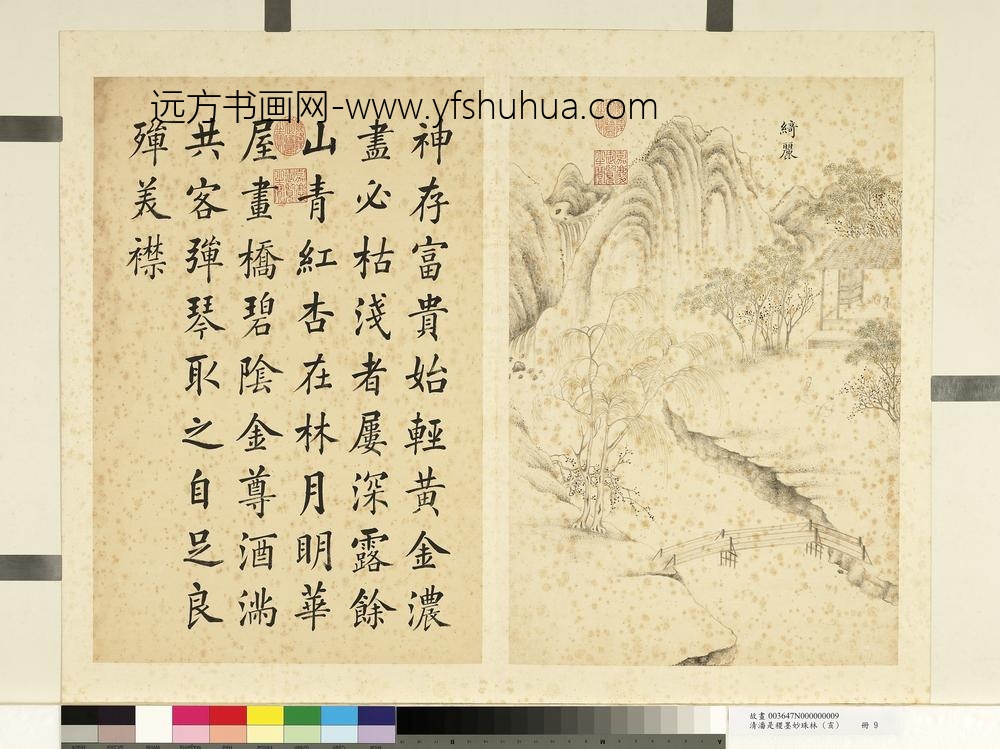 远方书画网-www.yfshuhua.com
綺麗
神存富貴始輕黃金濃
盡必枯淺者屢深露餘
山青紅杏在林月明華
屋畫橋碧陰金尊酒滿
共客彈琴取之自足良
殫美襟
故畫 003647N000000009
清潘是稷墨妙珠林（亥） 冊 9